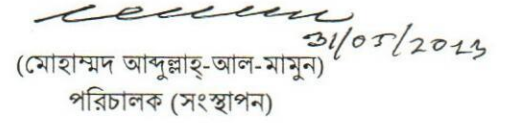 31/05/2013
(মোহাম্মদ আব্দুল্লাহ্-আল-মামুন)
পরিচালক (সংস্থাপন)